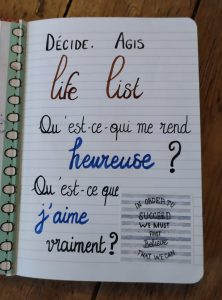 DÉCIDE. AGIS
life list
Qu'est-ce-qui me rend
heureuse ?
Qu'est-ce que
j'aime
vraiment ?
IN ORDER TO
SUCCEED
WE MUST
FIRST
Believe
THAT WE CAN